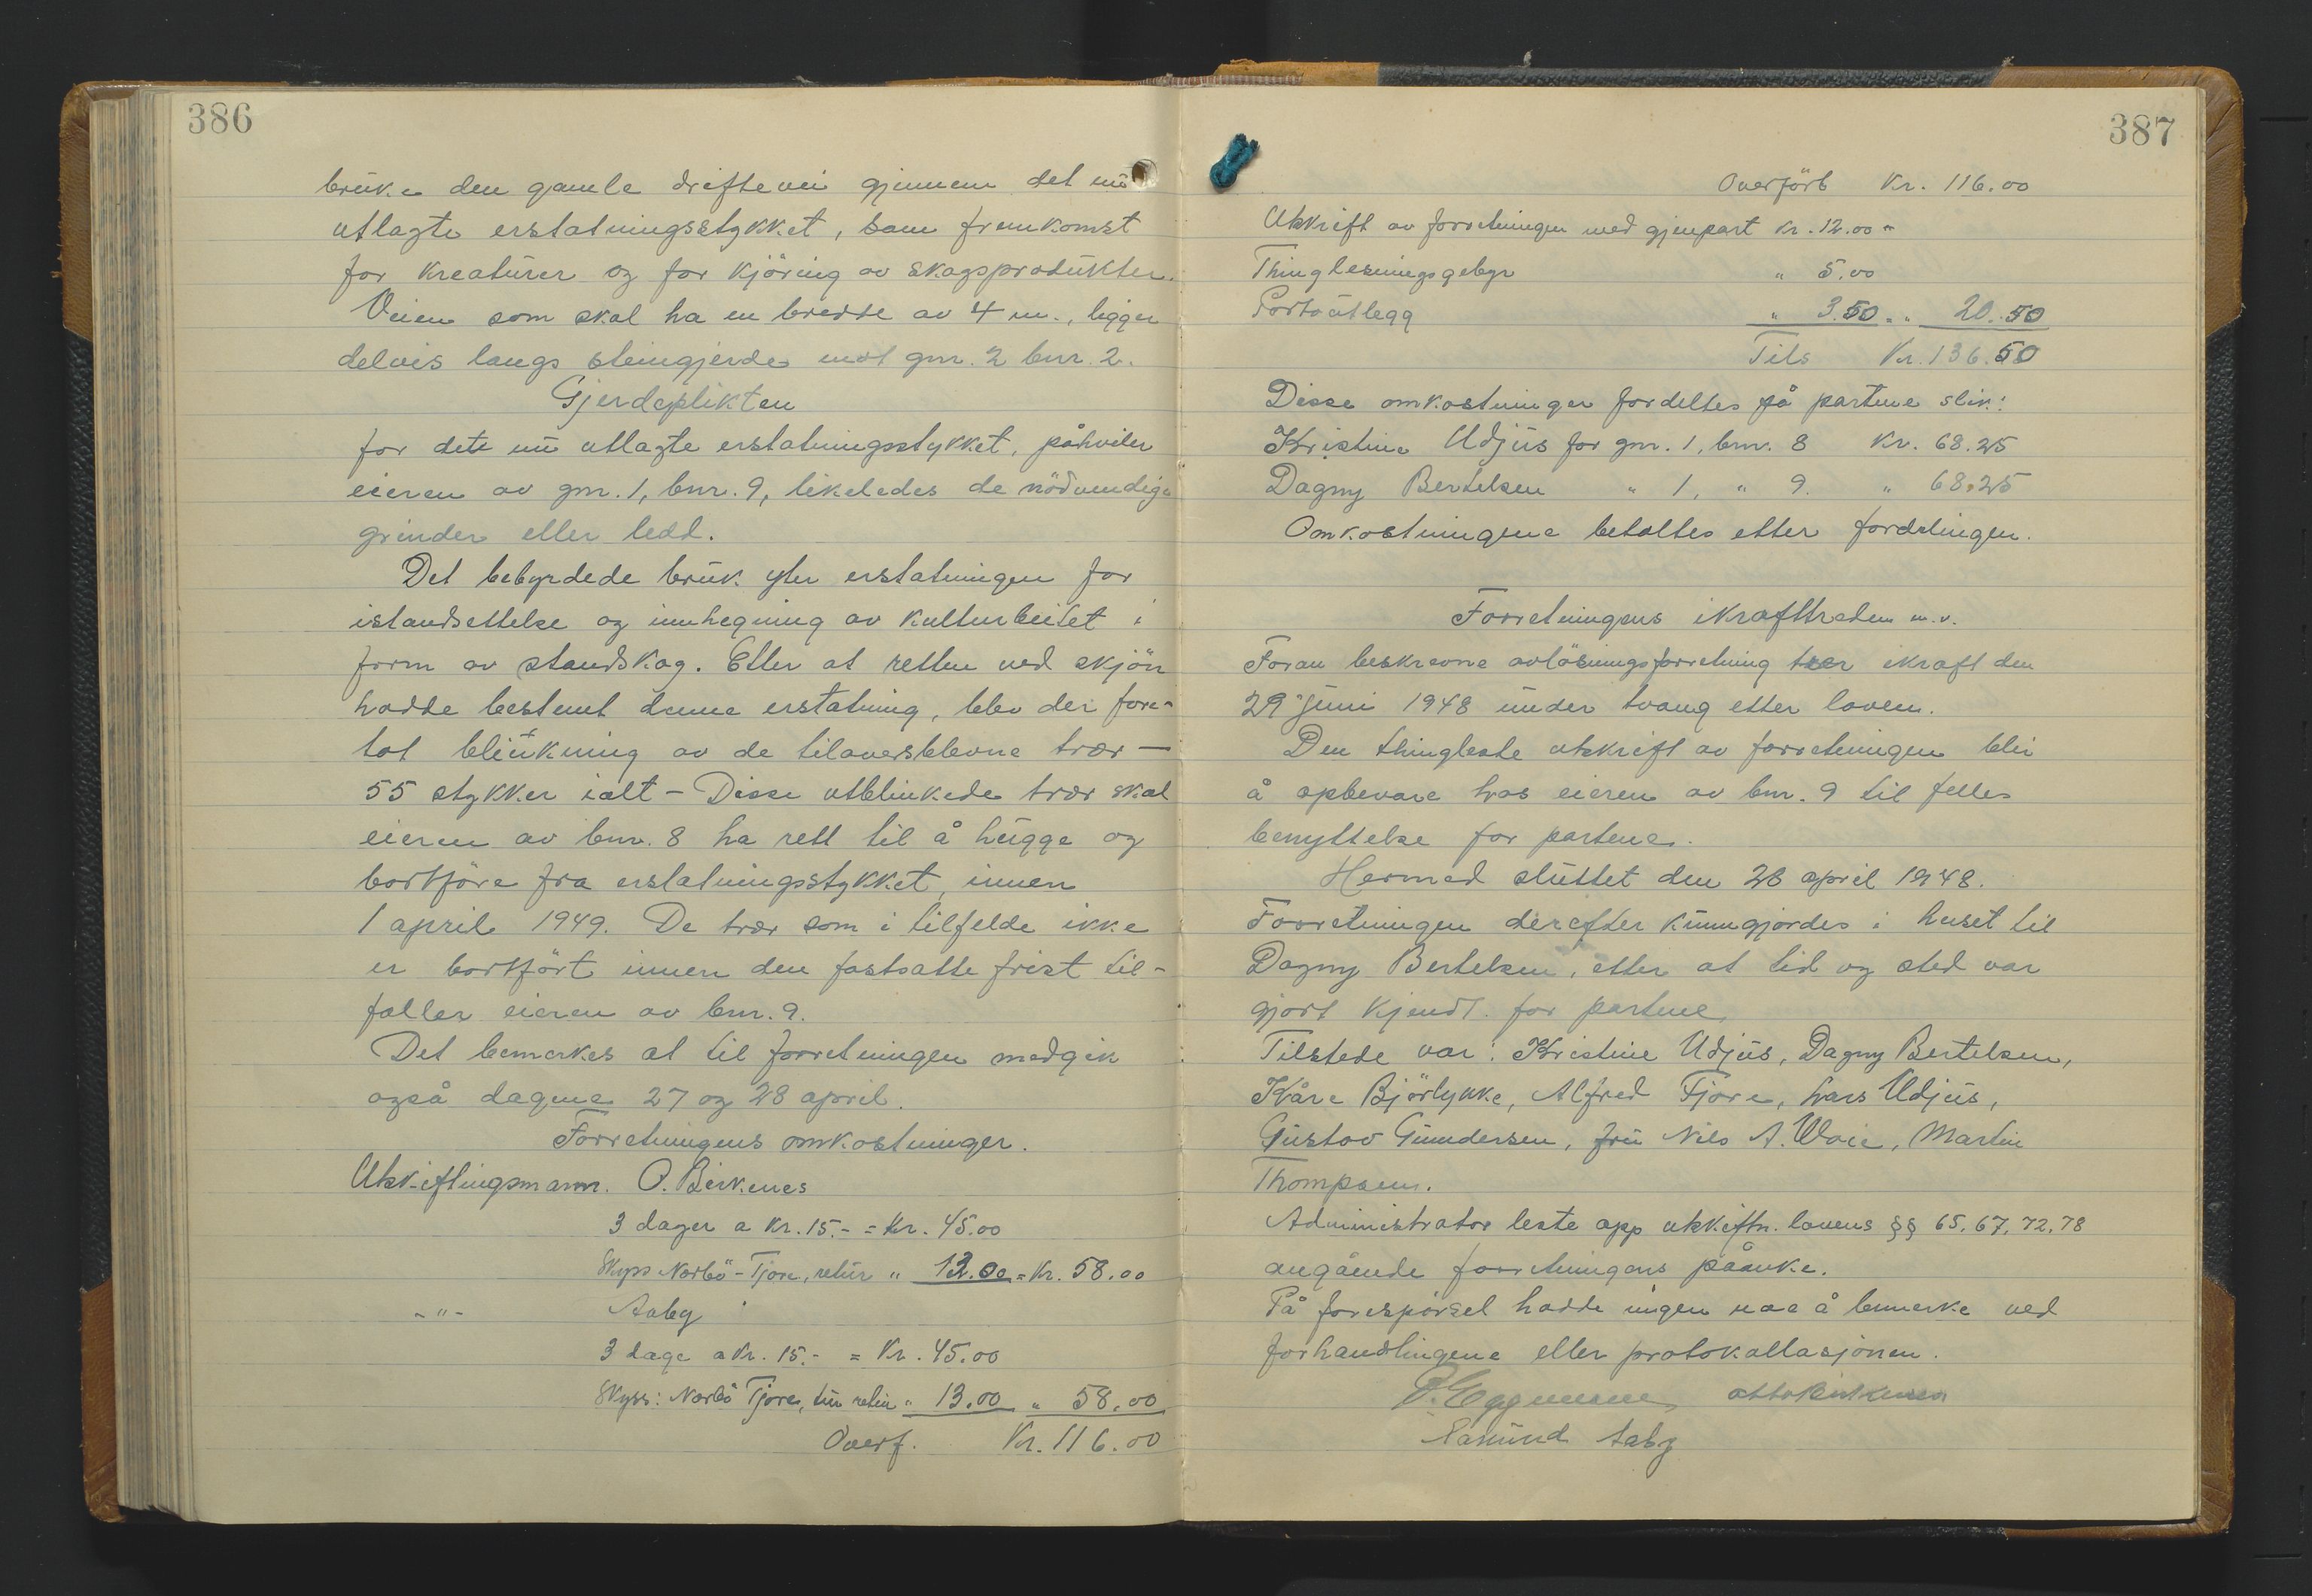 386
bruke den gamle driftevei gjennem det nu
utlagte erstatningsstykket, som fremkomst
for kreaturer og for kjöring av skogsprodukter.
Veien som skal ha en bredde av 4 m., ligger
delvis langs steingjerde mot gnr. 2 bnr. 2.
Gjerdeplikten
for dete nu utlagte erstatningsstykket, påhviler
eieren av gnr. 1, bnr. 9, likeledes de nödvendige
grinder eller ledd.
Det bebyrdede bruk yter erstatningen for
istandsettelse og innhegning av kulturbeitet i
form av standskog. Etter at retten ved skjön
hadde bestemt denne erstatning, blev der fore-
tat blinkning av de tiloversblevne trær —
55 stykker ialt - Disse utblinkede trær skal
eieren av bnr. 8 ha rett til å hugge og
bortföre fra erstatningsstykket, innen
1 april 1949. De trær som i tilfelde ikke
er bortfört innen den fastsatte frist til-
faller eieren av bnr. 9.
Det bemerkes at til forretningen medgik
også dagene 27 og 28 april.
Forretningens omkostninger.
Utskiftingsmann. O. Birkenes
3 dager a kr. 15.- = Kr. 45.00
Skyss Norbö - Tjore, retur " 13.00 = Kr. 58.00
- " - Aaby
3 dage a Kr. 15.- = Kr. 45.00
Skyss: Norbö Tjore, tur retur " 13.00 " 58.00
Overf. Kr. 116.00
387
Overfört Kr. 116.00
Utskrift av forretningen med gjenpart Kr. 12.00 "
Thinglesningsgebyr " 5.00
Portoutlegg " 3.50 = " 20.50
Tils Kr. 136.50
Disse omkostninger fordeltes på partene slik:
Kristine Udjus for gnr. 1, bnr. 8 Kr. 68.25
Dagny Bertelsen " 1, " 9. " 68.25
Omkostningene betaltes etter fordelingen.
Forretningens ikrafttreden m.v.
Foran beskrevne avlösningsforretning trer ikraft den
29 juni 1948 under tvang etter loven.
Den thingleste utskrift av forretningen blir
å opbevare hos eieren av bnr. 9 til felles
benyttelse for partene.
Hermed sluttet den 28 april 1948.
Forretningen derefter kunngjordes i huset til
Dagny Bertelsen, etter at tid og sted var
gjort kjendt for partene.
Tilstede var: Kristine Udjus, Dagny Bertelsen,
Kåre Björlykke, Alfred Tjore, Lars Udjus,
Gustav Gundersen, fru Nils A. Woie, Martin
Thompsen.
Administrator leste opp utskiftn. lovens §§ 65, 67, 72, 78
angående forretningens påanke.
På forespörsel hadde ingen noe å bemerke ved
forhandlingene eller protokollasjonen.
Otto Birkenes
Aaby